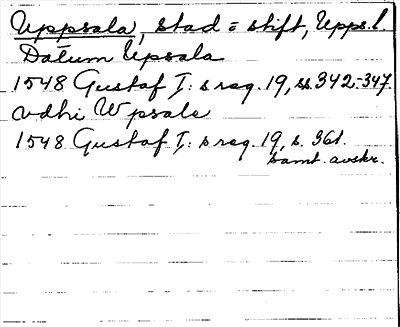 Uppsala, stad o stift, Upps. l.
Datum Upsala
1548 Gustaf I:s reg. 19, ss. 342-347.
vdhi Wpsale
1548 Gustaf I:s reg. 19, s. 361.
samt. avskr.